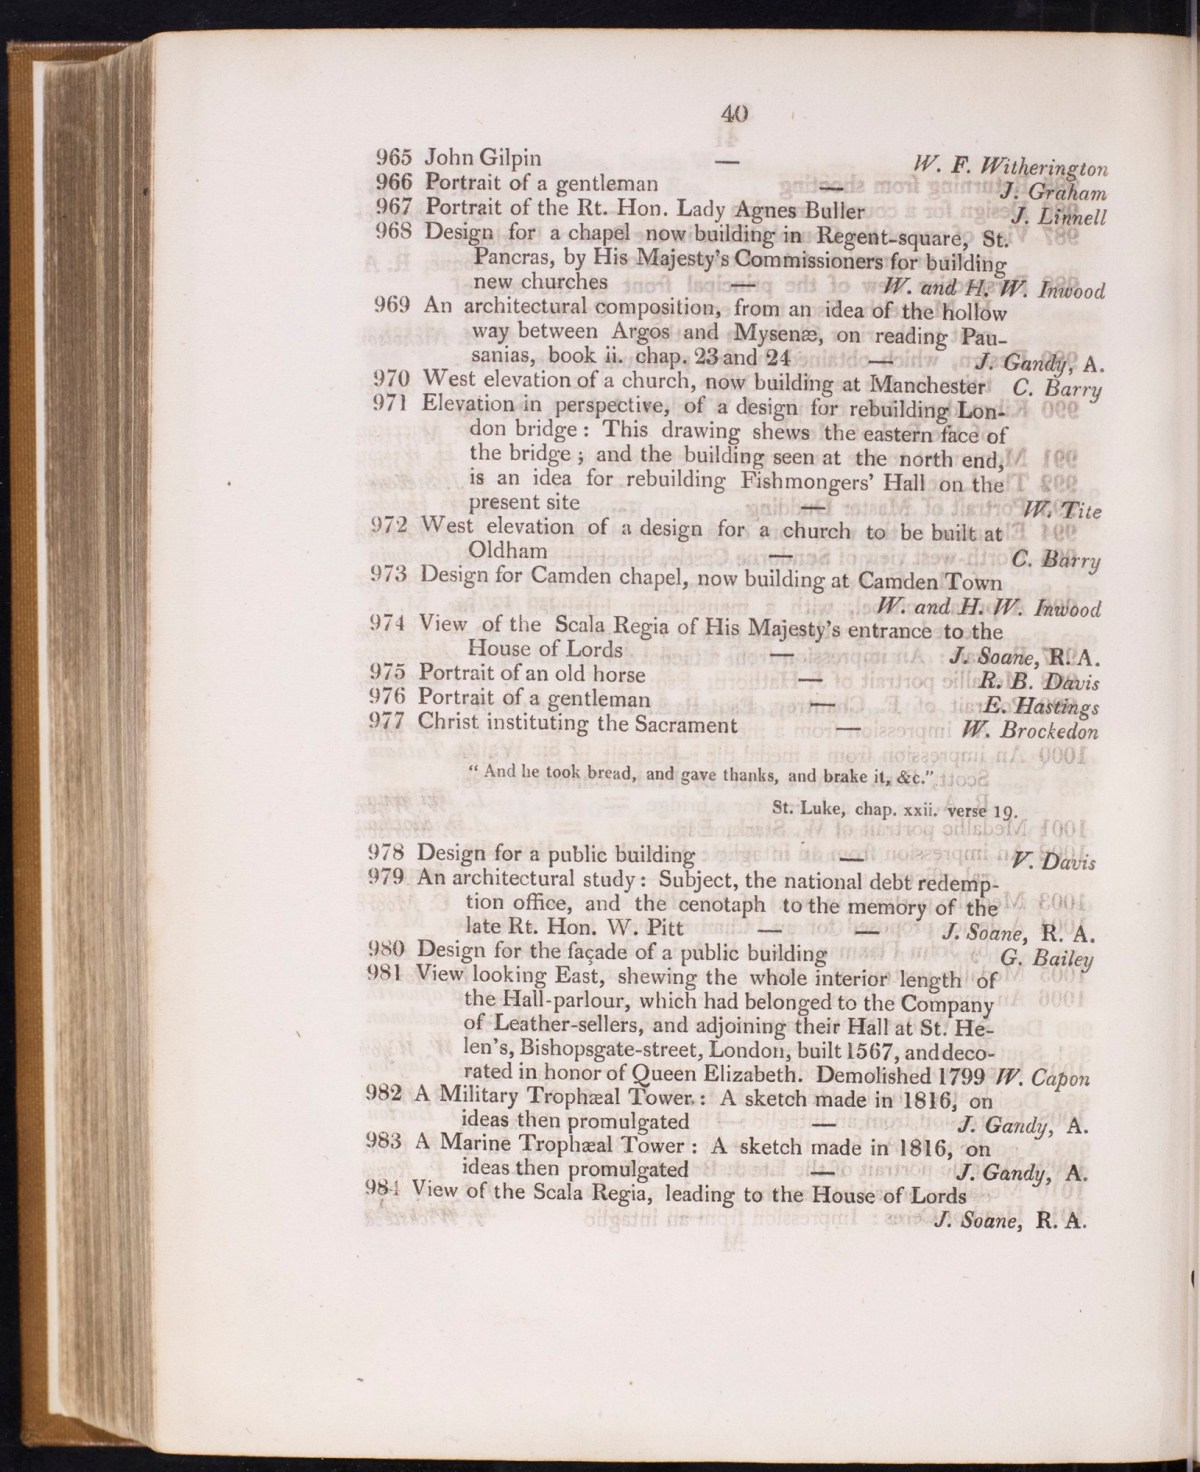 40
965 John Gilpin — W. F. Witherington
966 Portrait of a gentleman — J. Graham
967 Portrait of the Rt. Hon. Lady Agnes Buller J. Linnell
968 Design for a chapel now building in Regent-square, St.
Pancras, by His Majesty's Commissioners for building
new churches — W. and H. W. Inwood
969 An architectural composition, from an idea of the hollow
way between Argos and Mysenæ, on reading Pau-
sanias, book ii. chap. 23 and 24 — J. Gandy, A.
970 West elevation of a church, now building at Manchester C. Barry
971 Elevation in perspective, of a design for rebuilding Lon-
don bridge : This drawing shews the eastern face of
the bridge ; and the building seen at the north end,
is an idea for rebuilding Fishmongers' Hall on the
present site — W. Tite
972 West elevation of a design for a church to be built at
Oldham — C. Barry
973 Design for Camden chapel, now building at Camden Town
W. and H. W. Inwood
974 View of the Scala Regia of His Majesty's entrance to the
House of Lords — J. Soane, R. A.
975 Portrait of an old horse — R. B. Davis
976 Portrait of a gentleman — E. Hastings
977 Christ instituting the Sacrament — W. Brockedon
“ And he took bread, and gave thanks, and brake it, &c.”
St. Luke, chap. xxii. verse 19.
978 Design for a public building — V. Davis
979 An architectural study : Subject, the national debt redemp-
tion office, and the cenotaph to the memory of the
late Rt. Hon. W. Pitt — — J. Soane, R. A.
980 Design for the façade of a public building G. Bailey
981 View looking East, shewing the whole interior length of
the Hall-parlour, which had belonged to the Company
of Leather-sellers, and adjoining their Hall at St. He-
len's, Bishopsgate-street, London, built 1567, and deco-
rated in honor of Queen Elizabeth. Demolished 1799 W. Capon
982 A Military Trophæal Tower : A sketch made in 1816, on
ideas then promulgated — J. Gandy, A.
983 A Marine Trophæal Tower : A sketch made in 1816, on
ideas then promulgated — J. Gandy, A.
984 View of the Scala Regia, leading to the House of Lords
J. Soane, R. A.